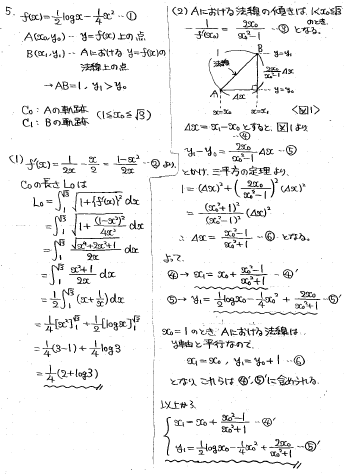 5. f(x)=1/2 logx - 1/4 x² …①
A(x₀,y₀) … y=f(x)上の点
B(x₁,y₁) … Aにおける y=f(x)の
法線上の点
→ AB=1, y₁ > y₀
C₀ : Aの軌跡
C₁ : Bの軌跡 (1≦x₀≦√3)
(1) f'(x) = 1/2x - x/2 = (1-x²)/2x …② より,
C₀の長さ L₀は
L₀ = ∫₁^√3 √(1+{f'(x)}²) dx
= ∫₁^√3 √(1+(1-x²)²/4x²) dx
= ∫₁^√3 √(x⁴+2x²+1)/2x dx
= ∫₁^√3 (x²+1)/2x dx
= 1/2 ∫₁^√3 (x+1/x) dx
= 1/4 [x²]₁^√3 + 1/2 [logx]₁^√3
= 1/4 (3-1) + 1/4 log3
= 1/4 (2+log3)
(2) Aにおける法線の傾きは 1<x₀≦√3
のとき,
-1/f'(x₀) = 2x₀/(x₀²-1) …③ となる。
B
y=y₁
法線
2x₀/(x₀²-1) Δx
A
Δx
y=y₀
x=x₀
x=x₁
<図1>
Δx = x₁-x₀ とすると, 図1より
④
y₁-y₀ = 2x₀/(x₀²-1) Δx …⑤
とかけ, 三平方の定理より,
1 = (Δx)² + (2x₀/(x₀²-1))² (Δx)²
= (x₀²+1)²/(x₀²-1)² (Δx)²
∴ Δx = (x₀²-1)/(x₀²+1) …⑥ となる。
よって,
④ → x₁ = x₀ + (x₀²-1)/(x₀²+1) …④'
⑤ → y₁ = 1/2 logx₀ - 1/4 x₀² + 2x₀/(x₀²+1) …⑤'
x₀=1 のとき, Aにおける法線は
y軸と平行なので
x₁=x₀, y₁=y₀+1 …⑥
となり, これらは ④',⑤'に含められる.
以上から,
x₁ = x₀ + (x₀²-1)/(x₀²+1) …④'
y₁ = 1/2 logx₀ - 1/4 x₀² + 2x₀/(x₀²+1) …⑤'